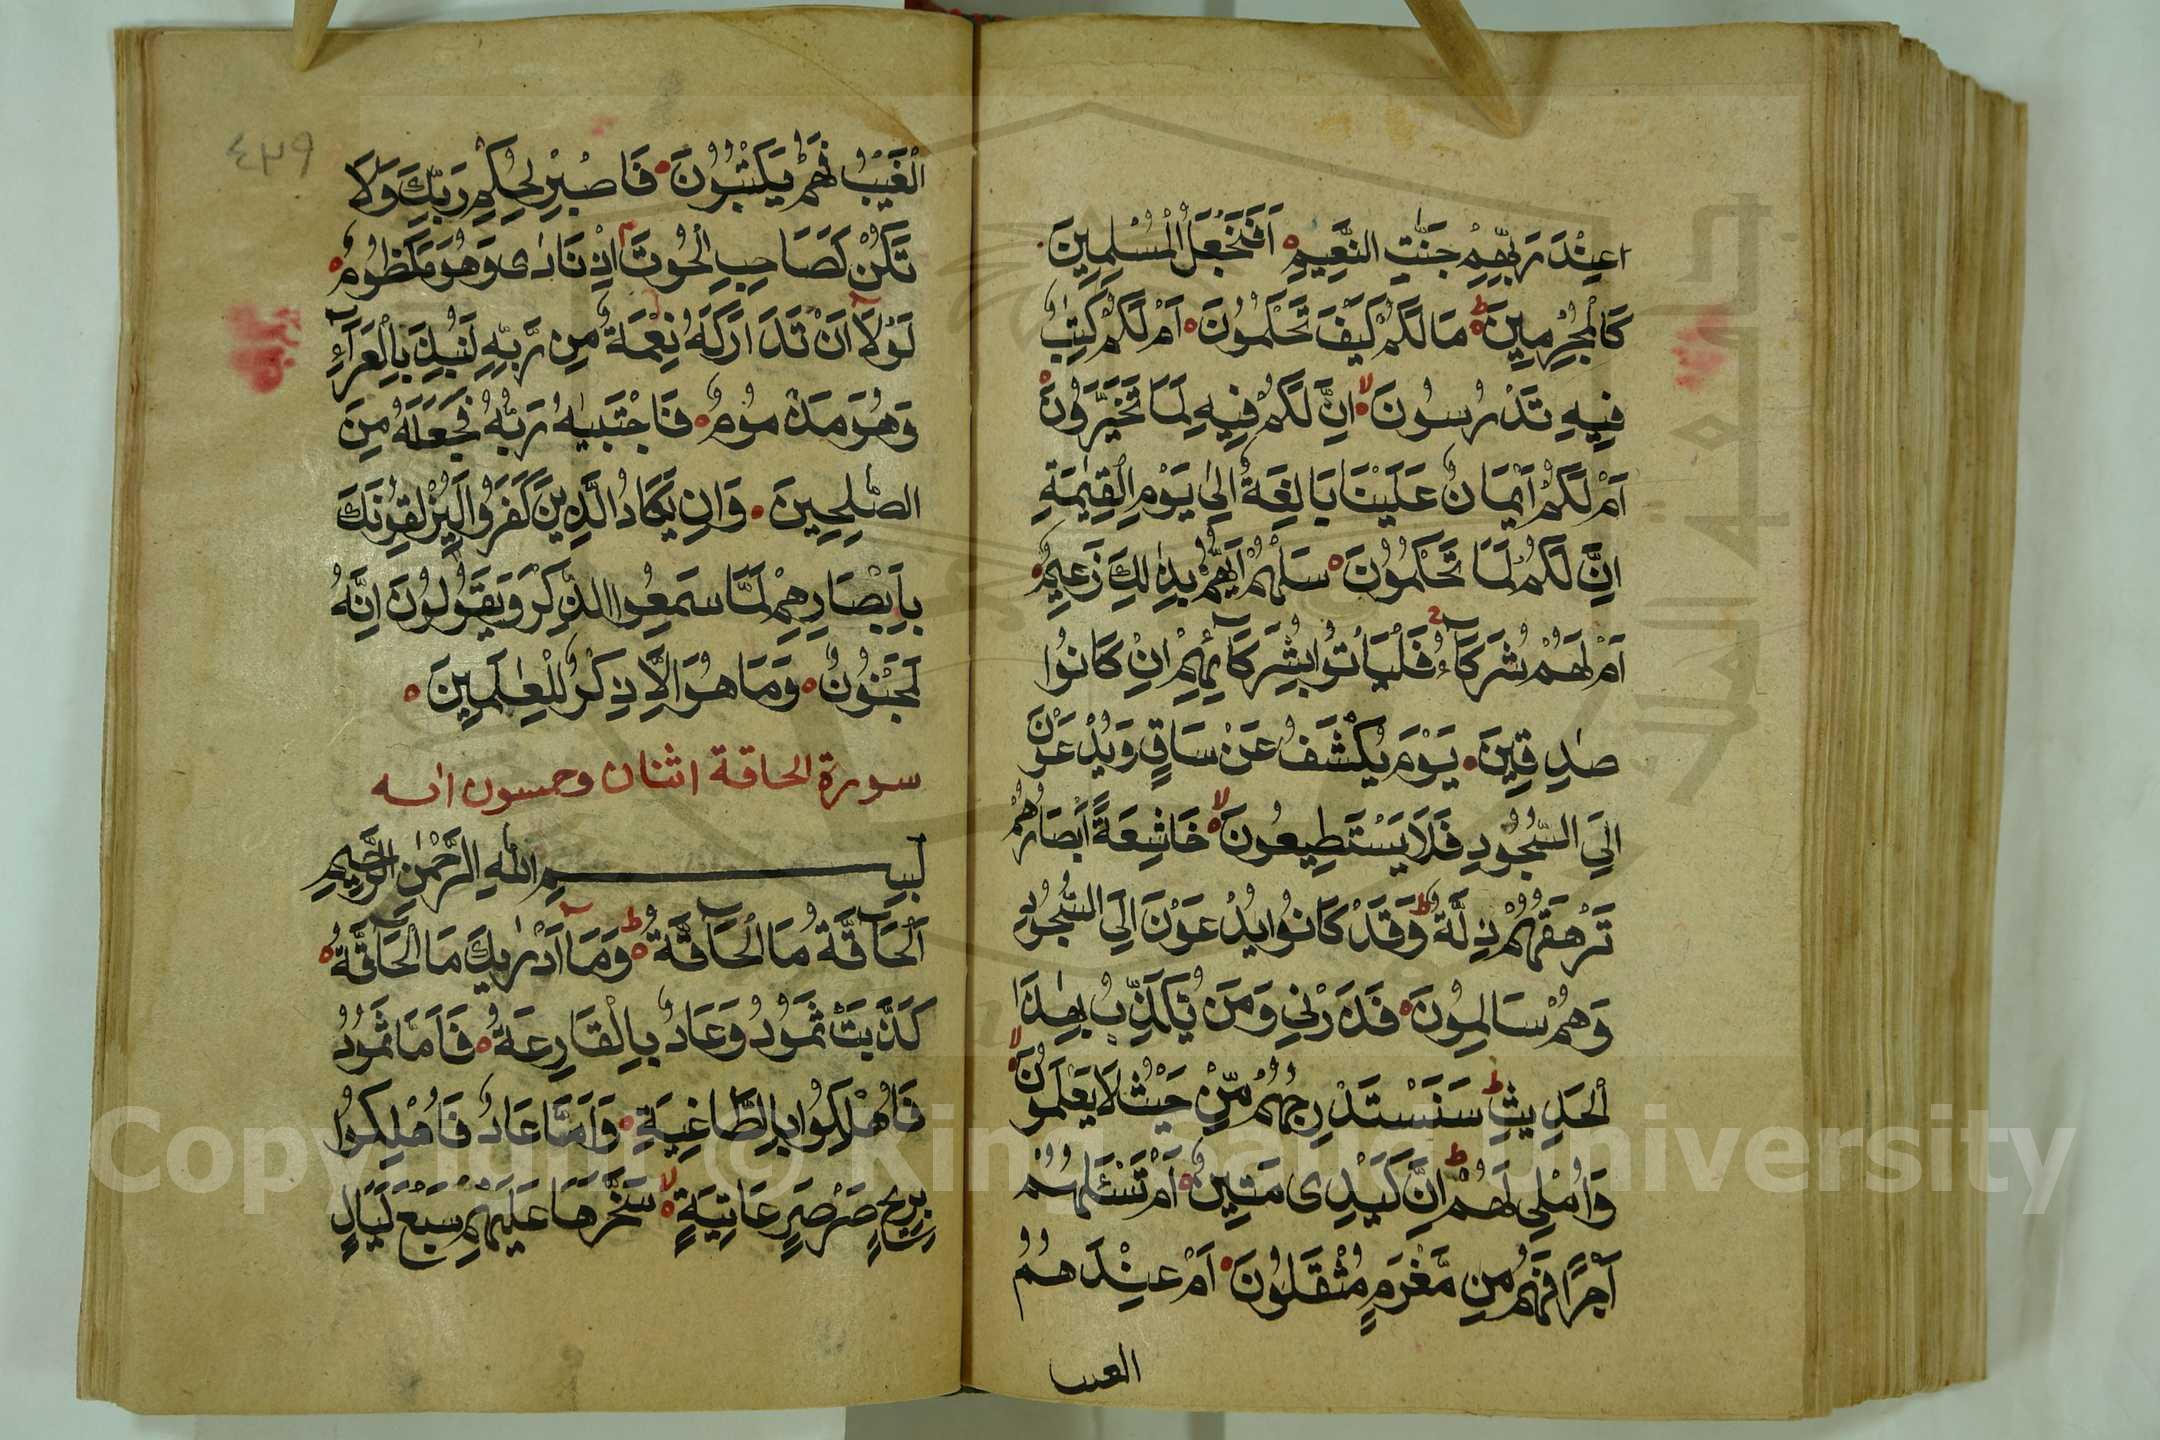 اعِنْدَ رَبِّهِمْ جَنّٰتِ النَّعِيْمِ اَفَنَجْعَلُ الْمُسْلِمِيْنَ
كَالْمُجْرِمِيْنَ مَا لَكُمْ كَيْفَ تَحْكُمُوْنَ اَمْ لَكُمْ كِتٰبٌ
فِيْهِ تَدْرُسُوْنَ اِنَّ لَكُمْ فِيْهِ لَمَا تَخَيَّرُوْنَ
اَمْ لَكُمْ اَيْمَانٌ عَلَيْنَا بَالِغَةٌ اِلٰى يَوْمِ الْقِيٰمَةِ
اِنَّ لَكُمْ لَمَا تَحْكُمُوْنَ سَلْهُمْ اَيُّهُمْ بِذٰلِكَ زَعِيْمٌ
اَمْ لَهُمْ شُرَكَآءُ فَلْيَأْتُوْا بِشُرَكَآئِهِمْ اِنْ كَانُوْا
صٰدِقِيْنَ يَوْمَ يُكْشَفُ عَنْ سَاقٍ وَيُدْعَوْنَ
اِلَى السُّجُوْدِ فَلَا يَسْتَطِيْعُوْنَ خَاشِعَةً اَبْصَارُهُمْ
تَرْهَقُهُمْ ذِلَّةٌ وَقَدْ كَانُوْا يُدْعَوْنَ اِلَى السُّجُوْدِ
وَهُمْ سَالِمُوْنَ فَذَرْنِيْ وَمَنْ يُكَذِّبُ بِهٰذَا
الْحَدِيْثِ سَنَسْتَدْرِجُهُمْ مِّنْ حَيْثُ لَا يَعْلَمُوْنَ
وَاُمْلِيْ لَهُمْ اِنَّ كَيْدِيْ مَتِيْنٌ اَمْ تَسْئَلُهُمْ
اَجْرًا فَهُمْ مِنْ مَّغْرَمٍ مُثْقَلُوْنَ اَمْ عِنْدَهُمُ
العب
٤٣٩
الْغَيْبُ فَهُمْ يَكْتُبُوْنَ فَاصْبِرْ لِحُكْمِ رَبِّكَ وَلَا
تَكُنْ كَصَاحِبِ الْحُوْتِ اِذْ نَادٰى وَهُوَ مَكْظُوْمٌ
لَوْلَآ اَنْ تَدَارَكَهُ نِعْمَةٌ مِنْ رَّبِّهٖ لَنُبِذَ بِالْعَرَآءِ
وَهُوَ مَذْمُوْمٌ فَاجْتَبٰيهُ رَبُّهُ فَجَعَلَهُ مِنَ
الصّٰلِحِيْنَ وَاِنْ يَكَادُ الَّذِيْنَ كَفَرُوْا لَيُزْلِقُوْنَكَ
بِاَبْصَارِهِمْ لَمَّا سَمِعُوا الذِّكْرَ وَيَقُوْلُوْنَ اِنَّهُ
لَمَجْنُوْنٌ وَمَا هُوَ اِلَّا ذِكْرٌ لِلْعٰلَمِيْنَ
سورة الحاقة اثنان وخمسون ايه
بِسْمِ اللهِ الرَّحْمٰنِ الرَّحِيْمِ
اَلْحَآقَّةُ مَا الْحَآقَّةُ وَمَآ اَدْرٰيكَ مَا الْحَآقَّةُ
كَذَّبَتْ ثَمُوْدُ وَعَادٌ بِالْقَارِعَةِ فَاَمَّا ثَمُوْدُ
فَاُهْلِكُوْا بِالطَّاغِيَةِ وَاَمَّا عَادٌ فَاُهْلِكُوْا
بِرِيْحٍ صَرْصَرٍ عَاتِيَةٍ سَخَّرَهَا عَلَيْهِمْ سَبْعَ لَيَالٍ
Copyright © King Saud University